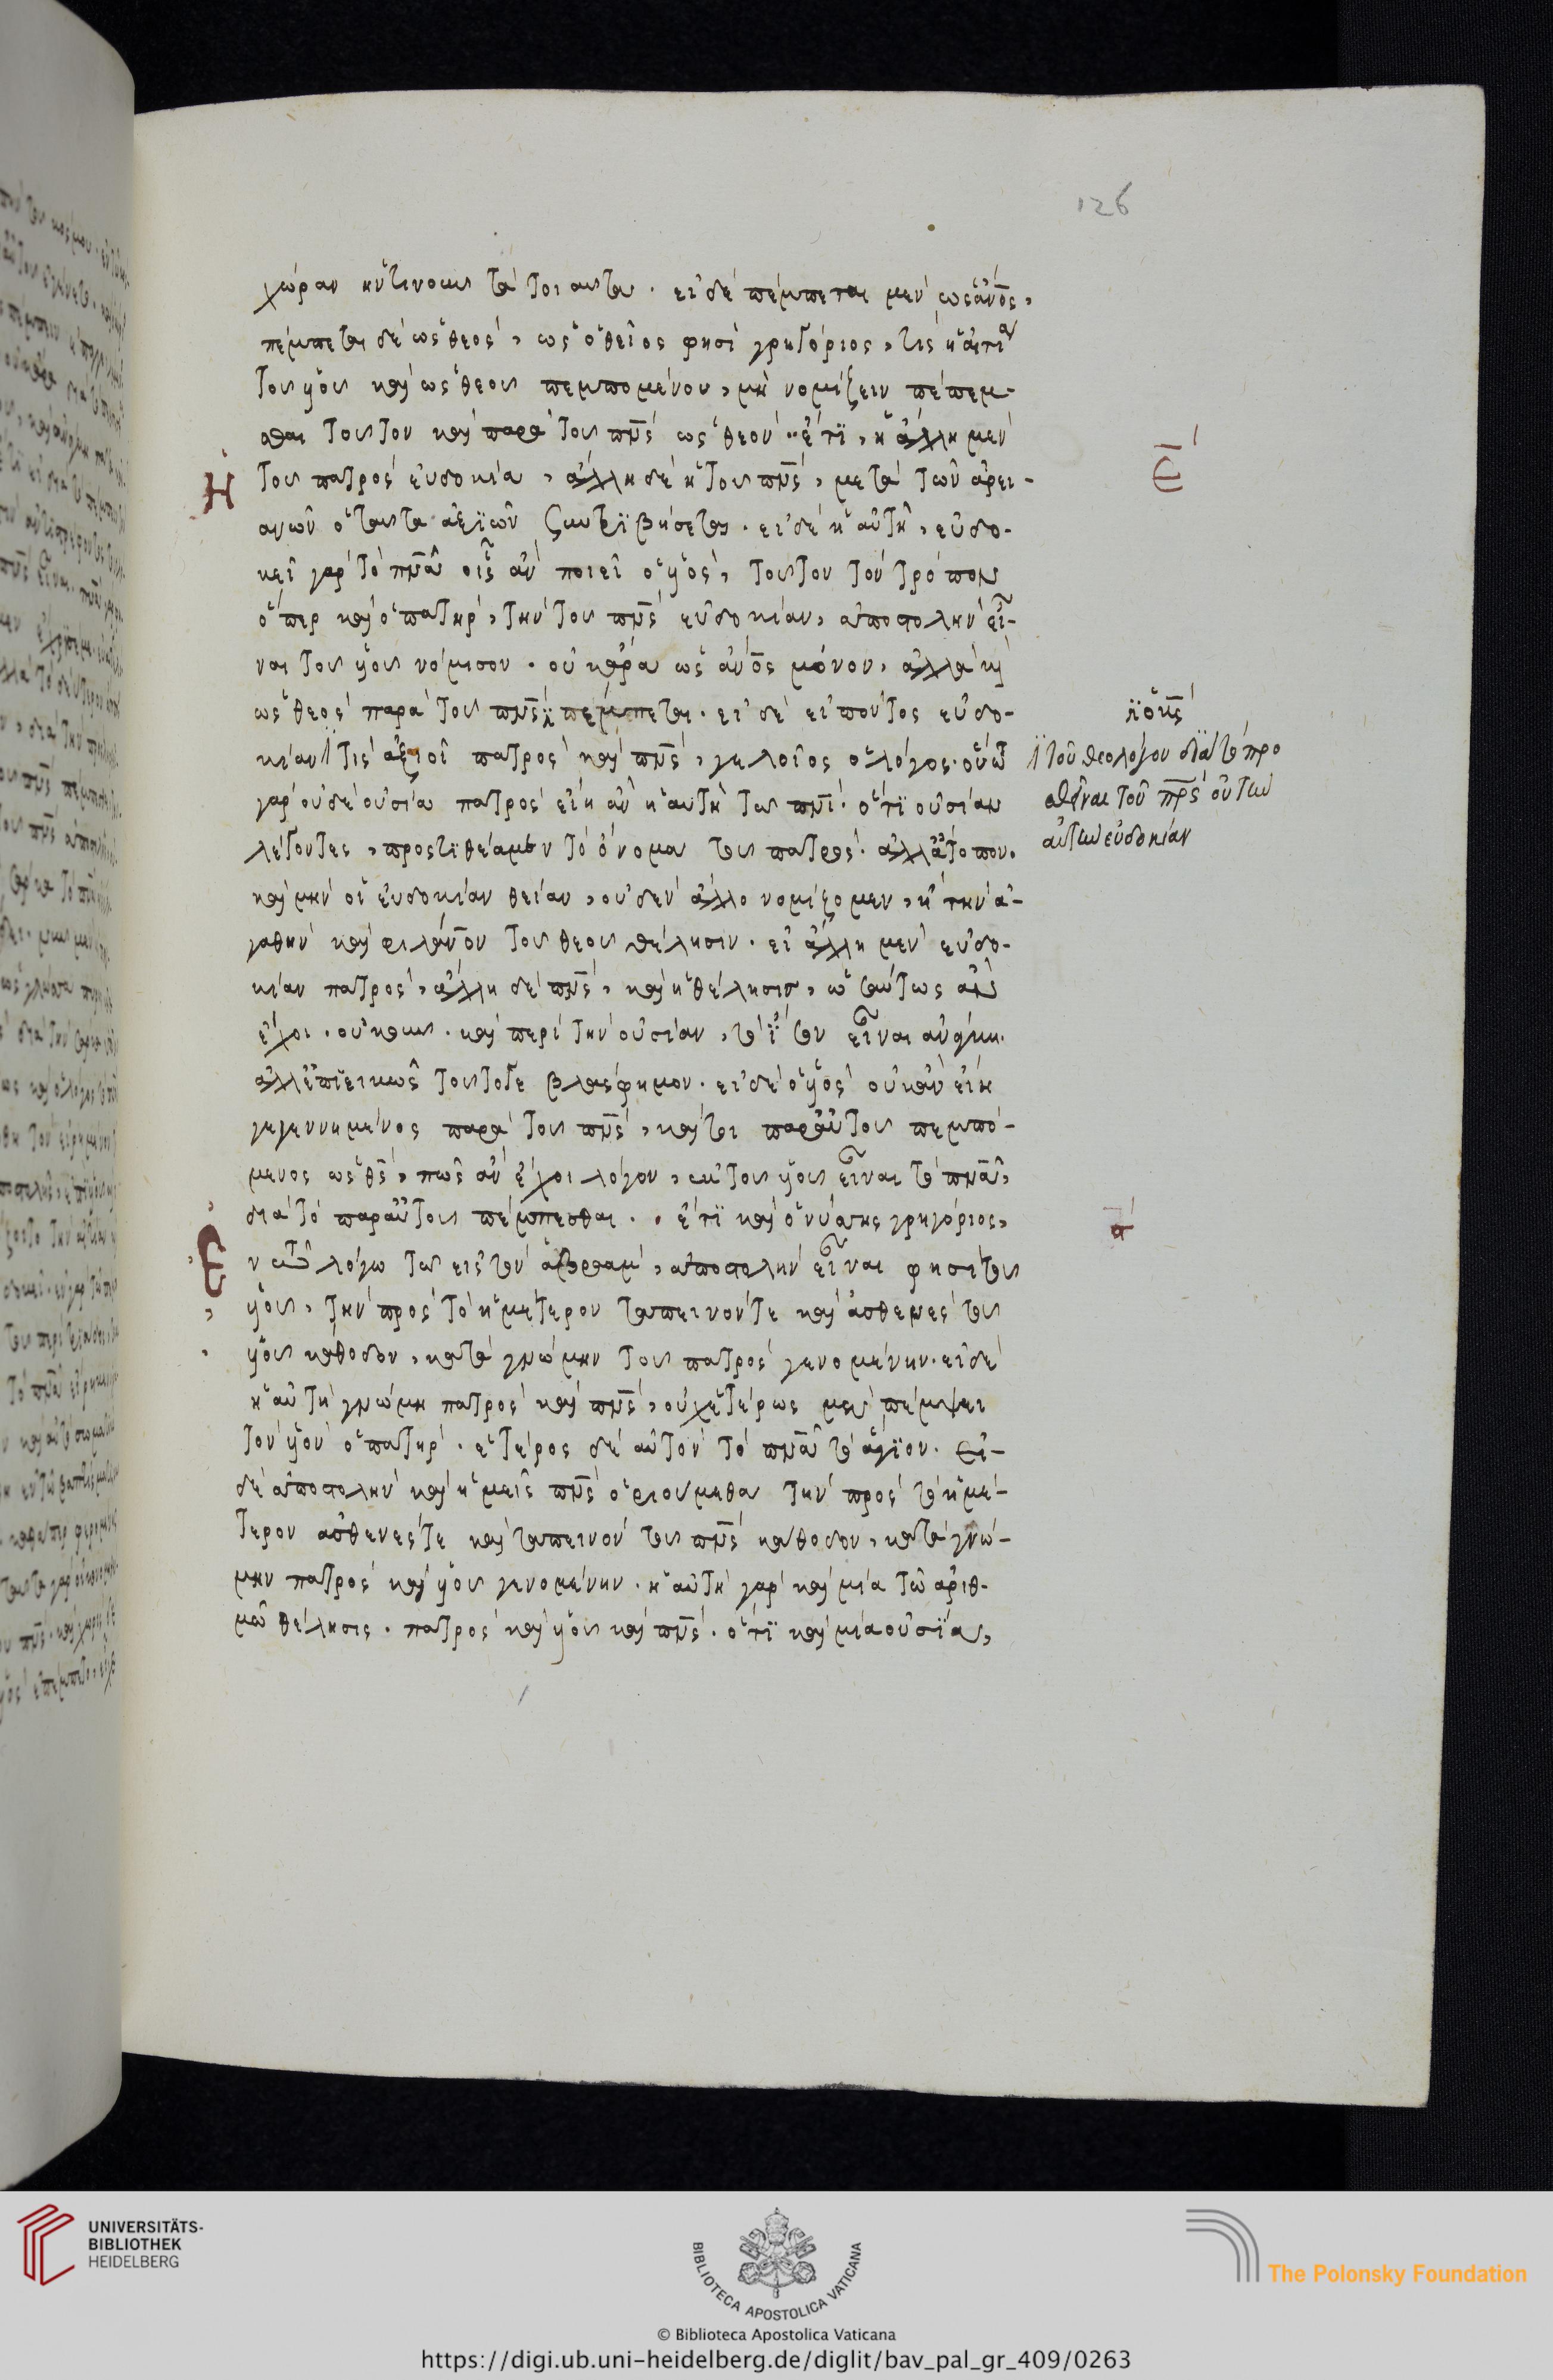 126
χώραν κἂν τινουν τὰ τοιαῦτα. εἰ δὲ πέμπεται μὲν ὡς ἄνος,
πέμπεται δὲ ὡς θεός, ὡς ὁ θεῖος φησὶ γρηγόριος, τίς ἡ αἰτία
τοῦ υἱοῦ καὶ ὡς θεοῦ πεμπομένου, μὴ νομίζειν πέπεμ-
φθαι τοῦτον καὶ παρὰ τοῦ πνς ὡς θεόν. ἔτι, ἡ ἄλλη μὲν
Η τοῦ πατρὸς εὐδοκία, ἄλλη δὲ ἡ τοῦ πνς, μετὰ τῶν ἀρει-
Ε
ανῶν ὁ ταῦτα ἀξιῶν στοιβήσεται. εἰ δὲ ἡ αὐτὴ, εὐδο-
κεῖ γὰρ τὸ πνα οἷς ἂν ποιεῖ ὁ υἱὸς, τοῦτον τὸν τρόπον
ὅπερ καὶ ὁ πατὴρ, τὴν τοῦ πνς εὐδοκίαν, ἀποστολὴν εἶ-
ναι τοῦ υἱοῦ νόμισον. οὐκ ἄρα ὡς ἄνος μόνον, ἀλλὰ καὶ
ὡς θεὸς παρὰ τοῦ πνς πέμπεται. εἰ δὲ εἰπόντος εὐδο-
κίαν τὶς ἀξιοῖ πατρὸς καὶ πνς, γελοῖος ὁ λόγος. οὕτω
τοῦ θεολόγου διὰ τὸ προ
γὰρ οὐδὲ οὐσία πατρὸς εἴη ἂν ἡ αὐτὴ τῷ πνι. ὅτι οὐσίαν
σθεῖναι τοῦ πρς οὕτω
λέγοντες, προστιθέαμεν τὸ ὄνομα τοῦ πατρός. ἀλλ' ἄτοπον.
αὐτῶ εὐδοκίαν
καὶ μὴν οἱ εὐδοκίαν θείαν, οὐδὲν ἄλλο νομίζομεν, ἢ τὴν ἀ-
γαθὴν καὶ φιλάνον τοῦ θεοῦ θέλησιν. εἰ ἄλλη μὲν εὐδο-
κίαν πατρὸς, ἄλλη δὲ πνς, καὶ ἡ θέλησις, ὡσαύτως ἂν
ἔχοι. οὐκοῦν. καὶ περὶ τὴν οὐσίαν, τὸ εἶναι ἀνάγκη.
ἀλλ' ἐπιεικῶς τοῦτό γε βλάσφημον. εἰ δὲ ὁ υἱὸς οὐκ ἂν εἴη
γεγεννημένος παρὰ τοῦ πνς, καίτοι παρ' αὐτοῦ πεμπό-
μενος ὡς θς, πῶς ἂν ἔχοι λόγον, ἐκ τοῦ υἱοῦ εἶναι τὸ πνα,
διὰ τὸ παρ' αὐτοῦ πέμπεσθαι. ἔτι καὶ ὁ νύσσης γρηγόριος,
α
Ε ν τῶ λόγω τῶ εἰς τὸν ἀβραὰμ, ἀποστολὴν εἶναι φησὶ τοῦ
υἱοῦ, τὴν πρὸς τὸ ἡμέτερον ταπεινόν τε καὶ ἀσθενὲς τοῦ
υἱοῦ κάθοδον, κατὰ γνώμην τοῦ πατρὸς γενομένην. εἰ δὲ
ἡ αὐτὴ γνώμη πατρὸς καὶ πνς, οὐχ ἑτέρως μὲν πέμψει
τὸν υἱὸν ὁ πατὴρ. ἑτέρος δὲ αὐτὸν τὸ πνα τὸ ἅγιον. εἰ-
δὲ ἀποστολὴν καὶ ἡμεῖς πνς ὁριούμεθα τὴν πρὸς τὸ ἡμέ-
τερον ἀσθενές τε καὶ ταπεινὸν τοῦ πνς κάθοδον, κατὰ γνώ-
μην πατρὸς καὶ υἱοῦ γενομένην. ἡ αὐτὴ γὰρ καὶ μία τῶ ἀριθ-
μῶ θέλησις. πατρὸς καὶ υἱοῦ καὶ πνς. ὅτι καὶ μία οὐσία,
UNIVERSITÄTS-
BIBLIOTHEK
HEIDELBERG
BIBLIOTECA APOSTOLICA VATICANA
The Polonsky Foundation
© Biblioteca Apostolica Vaticana
https://digi.ub.uni-heidelberg.de/diglit/bav_pal_gr_409/0263